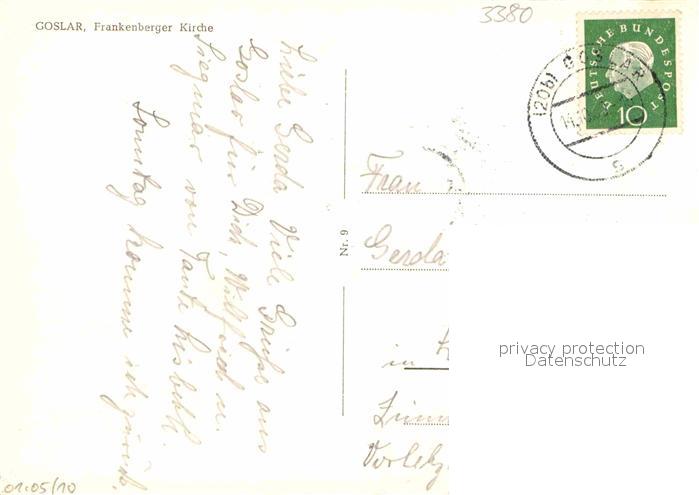 GOSLAR, Frankenberger Kirche
3380
DEUTSCHE BUNDESPOST
10
(20b) GOSLAR
s
Liebe Gerda Viele Grüße aus
Goslar für Dich, Wilfried u.
Siegmar von Tante Lisbeth.
Sonntag komme ich zurück.
Nr. 9
Frau
Gerda
in
privacy protection
Datenschutz
01.05/10